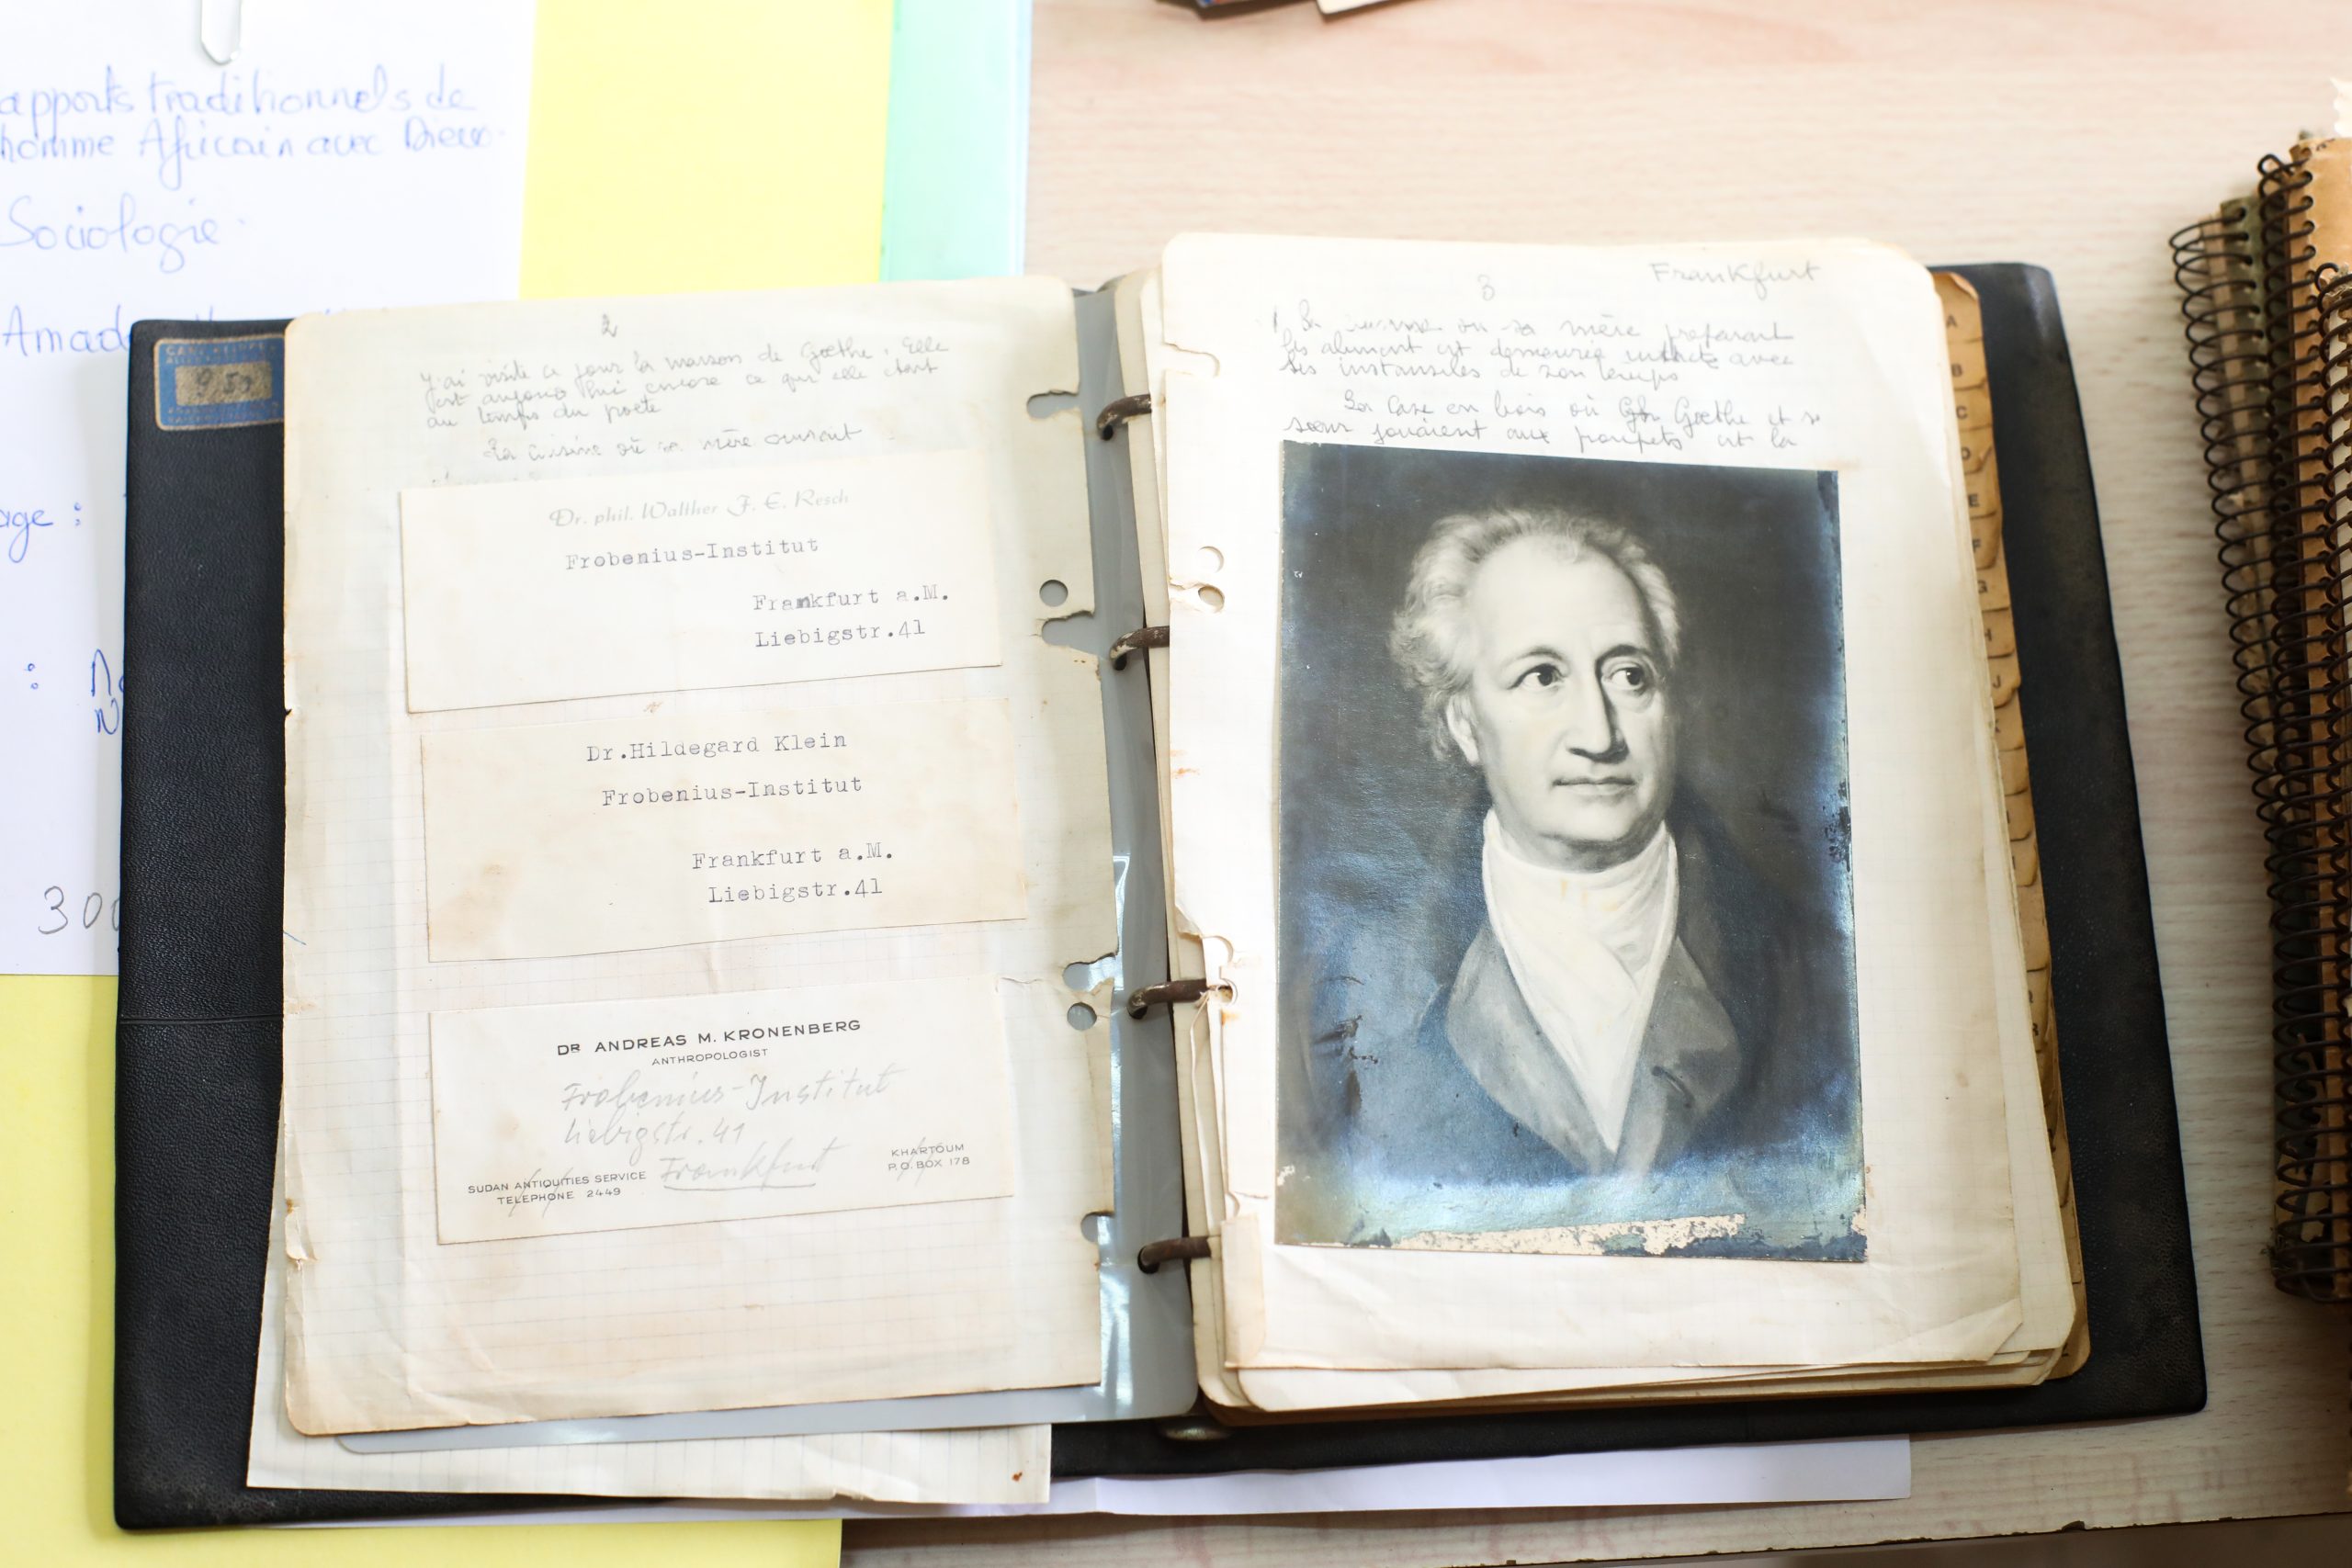 apports traditionnels de
homme Africain avec Dieu
Sociologie
Amad
age :
: N
N
300
2
J'ai visité ce jour la maison de Gœthe. Elle
est aujourd'hui encore ce qu'elle était
au temps du poète
La cuisine où sa mère ouvrait
Dr. phil. Walther F. E. Resch
Frobenius-Institut
Frankfurt a.M.
Liebigstr.41
Dr.Hildegard Klein
Frobenius-Institut
Frankfurt a.M.
Liebigstr.41
DR ANDREAS M. KRONENBERG
ANTHROPOLOGIST
Frobenius-Institut
Liebigstr. 41
Frankfurt
SUDAN ANTIQUITIES SERVICE
TELEPHONE 2449
KHARTOUM
P.O. BOX 178
3
Frankfurt
où sa mère preparant
les aliment est demeurée intacte avec
ses instansiles de son temps
La case en bois où Gœthe et s
sœur jouaient aux poupets est la
A
B
C
D
E
F
G
H
J
R